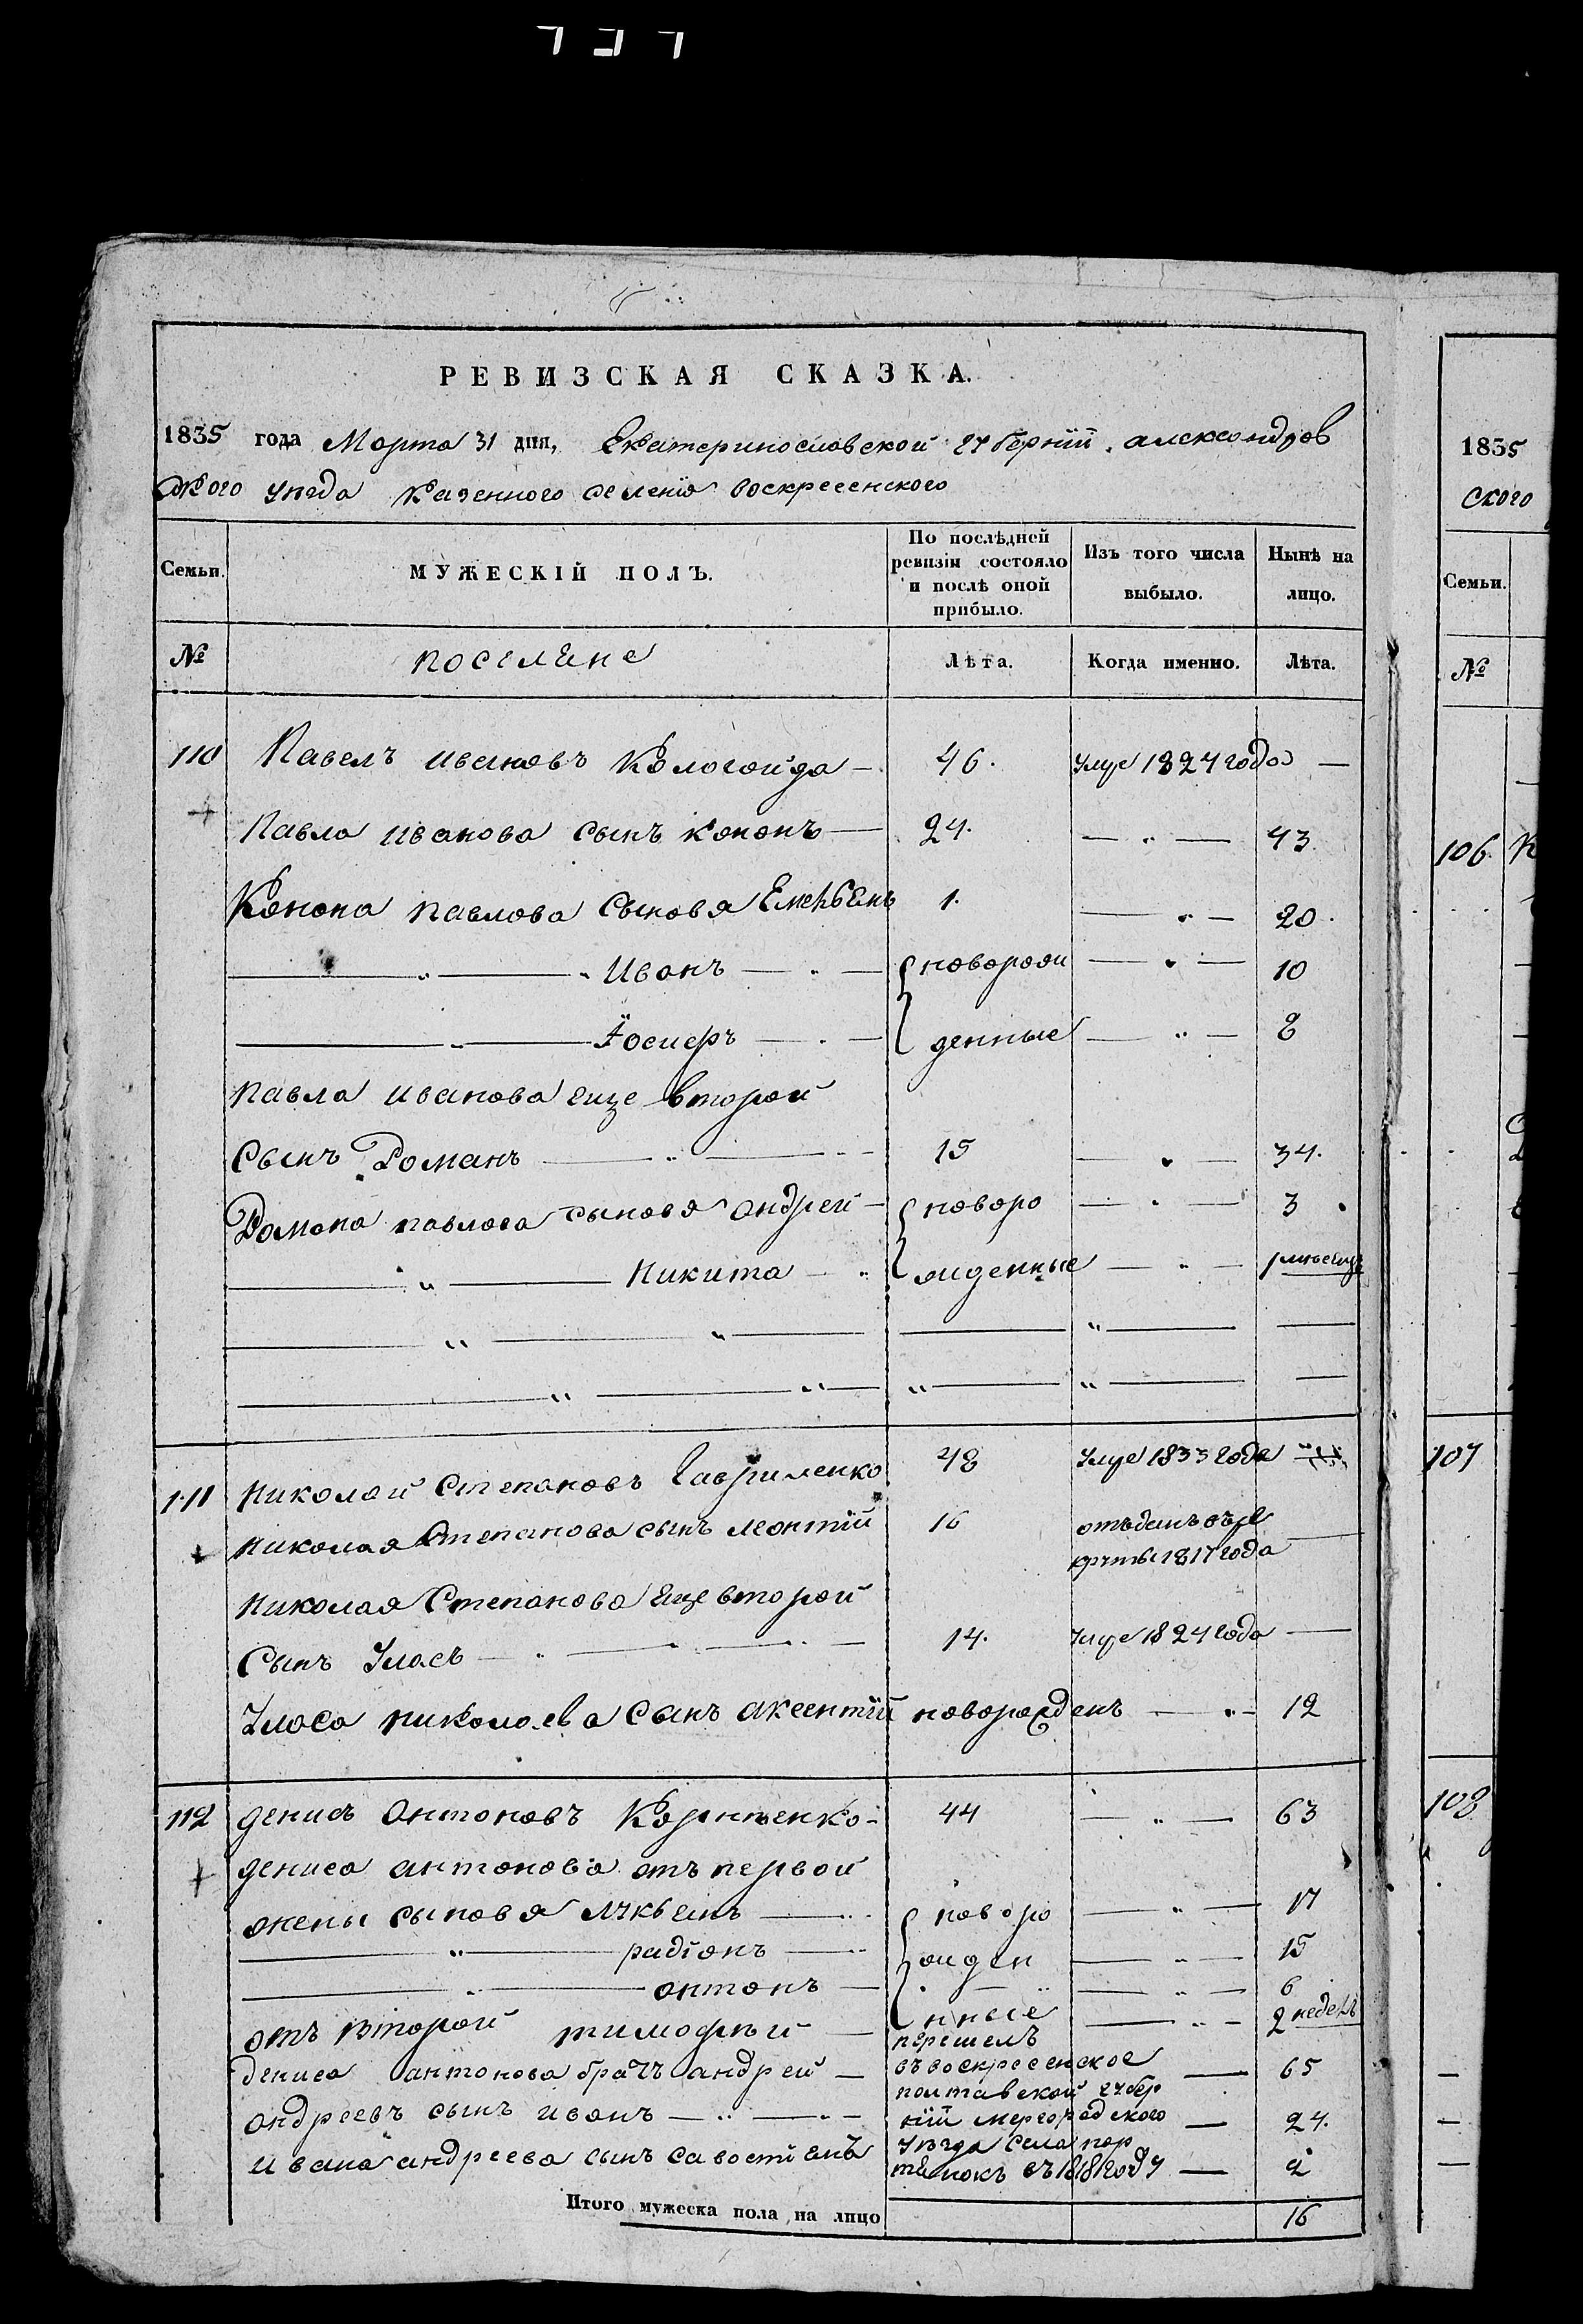 РЕВИЗСКАЯ СКАЗКА.
1835 года Марта 31 дня, Екатеринославской губерніи. александров
ского уезда казенного селенія воскресенского
Семьи.
МУЖЕСКІЙ ПОЛЪ.
По послѣдней ревизіи состояло и послѣ оной прибыло.
Изъ того числа выбыло.
Нынѣ на лицо.
№ поселяне Лѣта. Когда именно. Лѣта.
110 Павелъ ивановъ Кологойда 46. умре 1824 года —
Павла иванова сынъ кононъ 24. — " — 43
Конона павлова сыновя Емельянъ 1. — " — 20
— " — " Иванъ — " — новорож — " — 10
— " — Іосифъ — " — денные — " — 8
павла иванова еще второй
сынъ Романъ — " — 15 — " — 34.
Романа павлова сыновя андрей — новоро — " — 3
— " — Никита — " жденные — " — 1 месецъ
— " — " — — " — —
— " — " — " — " — —
111 николай степановъ Гавриленко 48 умре 1833 года
николая Степанова сынъ леонтій 16 отъданъ въре
круты 1817 года —
николая Степанова еще второй
сынъ Уласъ — " — 14. умре 1824 года —
Уласа николаева сынъ аксентій новорожденъ — " — 12
112 денисъ антоновъ Корнѣенко — 44 — " — 63
дениса антонова отъ первой
жены сыновя лукьянъ — новоро — " — 17
— " — радіонъ — жден — " — 15
— " — антонъ — — " — 6
отъ второй тимофѣй — нные — " — 2 недель
дениса антонова братъ андрей — перешелъ
въ воскресенское — 65
полтавской губер
андреевъ сынъ иванъ — " — " — ніи мергородского — 24.
уезда села пор
ивана андреева сынъ савостіянъ тянокъ въ 1818 году — 2
Итого мужеска пола на лицо 16
1835
ского
Семьи.
№
106
107
108